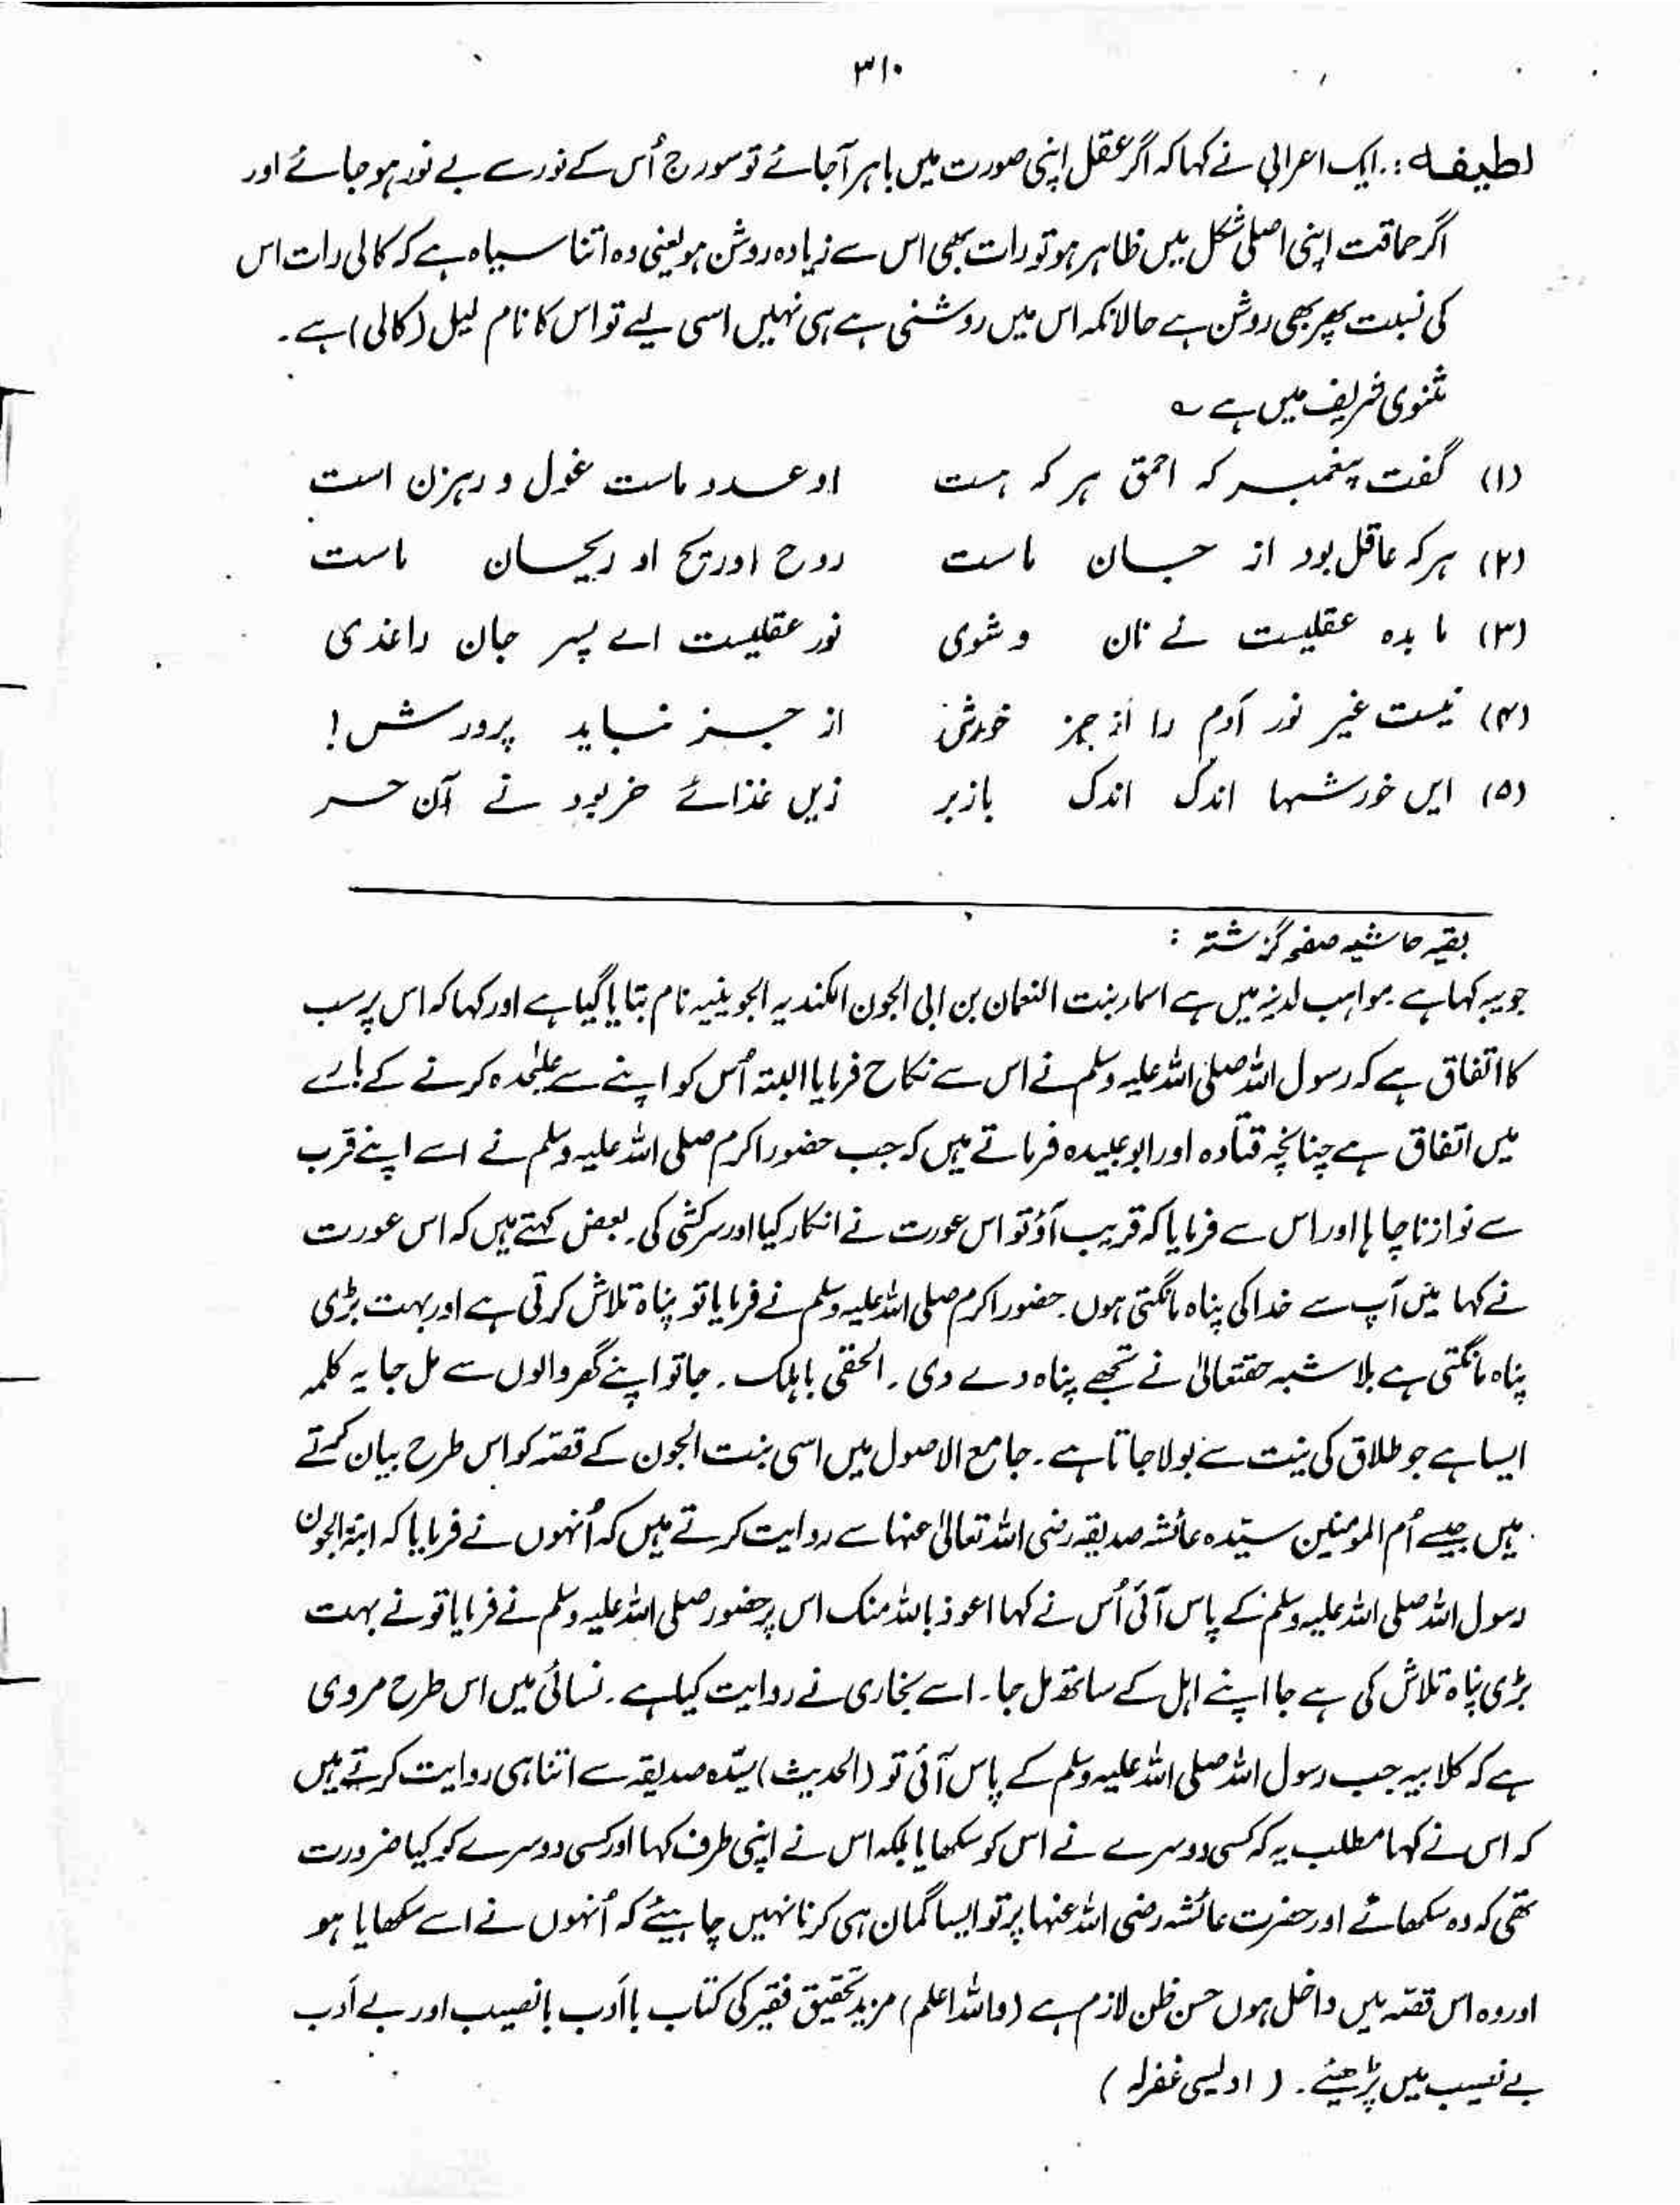 ۳۱۰
لطیفہ :. ایک اعرابی نے کہا کہ اگر عقل اپنی صورت میں باہر آجائے تو سورج اُس کے نور سے بے نور ہو جائے اور
اگر حماقت اپنی اصلی شکل میں ظاہر ہو تو رات بھی اس سے زیادہ روشن ہو یعنی وہ اتنا سیاہ ہے کہ کالی رات اس
کی نسبت پھر بھی روشن ہے حالانکہ اس میں روشنی ہے ہی نہیں اسی لیے تو اس کا نام لیل (کالی) ہے۔
مثنوی شریف میں ہے ؎
(۱) گفت پیغمبر کہ احمق ہر کہ ہست او عدو ماست غول و رہزن است
(۲) ہر کہ عاقل بود از جان ماست روح او ریح او ریحان ماست
(۳) مابدہ عقلیست نے نان و شوی نور عقلیست اے پسر جان راغذی
(۴) نیست غیر نور آدم را از جز خورش از جز نباید پرورش!
(۵) ایں خورشہا اندک اندک بازبر زیں غذائے خر بود نے آن حر
بقیہ حاشیہ صفحہ گزشتہ :
جویبہ کہا ہے۔ مواہب لدنیہ میں ہے اسماء بنت النعمان بن ابی الجون الکندیہ الجوینیہ نام بتایا گیا ہے اور کہا کہ اس پر سب
کا اتفاق ہے کہ رسول اللہ صلی اللہ علیہ وسلم نے اس سے نکاح فرمایا البتہ اُس کو اپنے سے علیٰحدہ کرنے کے بارے
میں اتفاق ہے چنانچہ قتادہ اور ابو عبیدہ فرماتے ہیں کہ جب حضور اکرم صلی اللہ علیہ وسلم نے اسے اپنے قرب
سے نوازنا چاہا اور اس سے فرمایا کہ قریب آؤ تو اس عورت نے انکار کیا اور سرکشی کی۔ بعض کہتے ہیں کہ اس عورت
نے کہا میں آپ سے خدا کی پناہ مانگتی ہوں۔ حضور اکرم صلی اللہ علیہ وسلم نے فرمایا تو پناہ تلاش کرتی ہے اور بہت بڑی
پناہ مانگتی ہے بلا شبہ حقتعالیٰ نے تجھے پناہ دے دی۔ الحقی باہلک۔ جا تو اپنے گھر والوں سے مل جا یہ کلمہ
ایسا ہے جو طلاق کی نیت سے بولا جاتا ہے۔ جامع الاصول میں اسی بنت الجون کے قصّہ کو اس طرح بیان کرتے
ہیں جیسے اُم المومنین سیّدہ عائشہ صدیقہ رضی اللہ تعالیٰ عنہا سے روایت کرتے ہیں کہ اُنہوں نے فرمایا کہ ابنۃ الجون
رسول اللہ صلی اللہ علیہ وسلم کے پاس آئی اُس نے کہا اعوذ باللہ منک اس پر حضور صلی اللہ علیہ وسلم نے فرمایا تو نے بہت
بڑی پناہ تلاش کی ہے جا اپنے اہل کے ساتھ مل جا۔ اسے بخاری نے روایت کیا ہے۔ نسائی میں اس طرح مروی
ہے کہ کلابیہ جب رسول اللہ صلی اللہ علیہ وسلم کے پاس آئی تو (الحدیث) سیّدہ صدیقہ سے اتنا ہی روایت کرتے ہیں
کہ اس نے کہا مطلب یہ کہ کسی دوسرے نے اس کو سکھایا بلکہ اس نے اپنی طرف کہا اور کسی دوسرے کو کیا ضرورت
تھی کہ وہ سکھائے اور حضرت عائشہ رضی اللہ عنہا پر تو ایسا گمان ہی کرنا نہیں چاہیئے کہ اُنہوں نے اسے سکھایا ہو
اور وہ اس قصّہ میں داخل ہوں حسن ظن لازم ہے (واللہ اعلم) مزید تحقیق فقیر کی کتاب باأدب بانصیب اور بے أدب
بے نصیب میں پڑھیئے۔ (اویسی غفرلہ)